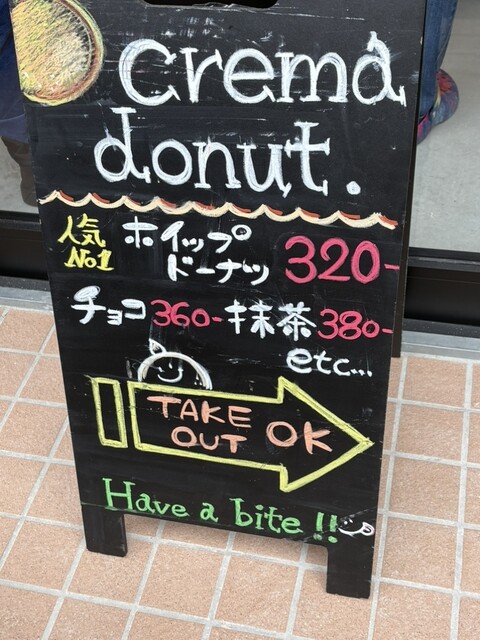 crema
donut.
人気 No.1 ホイップドーナツ 320-
チョコ 360- 抹茶 380-
etc...
TAKE OUT OK
Have a bite!!